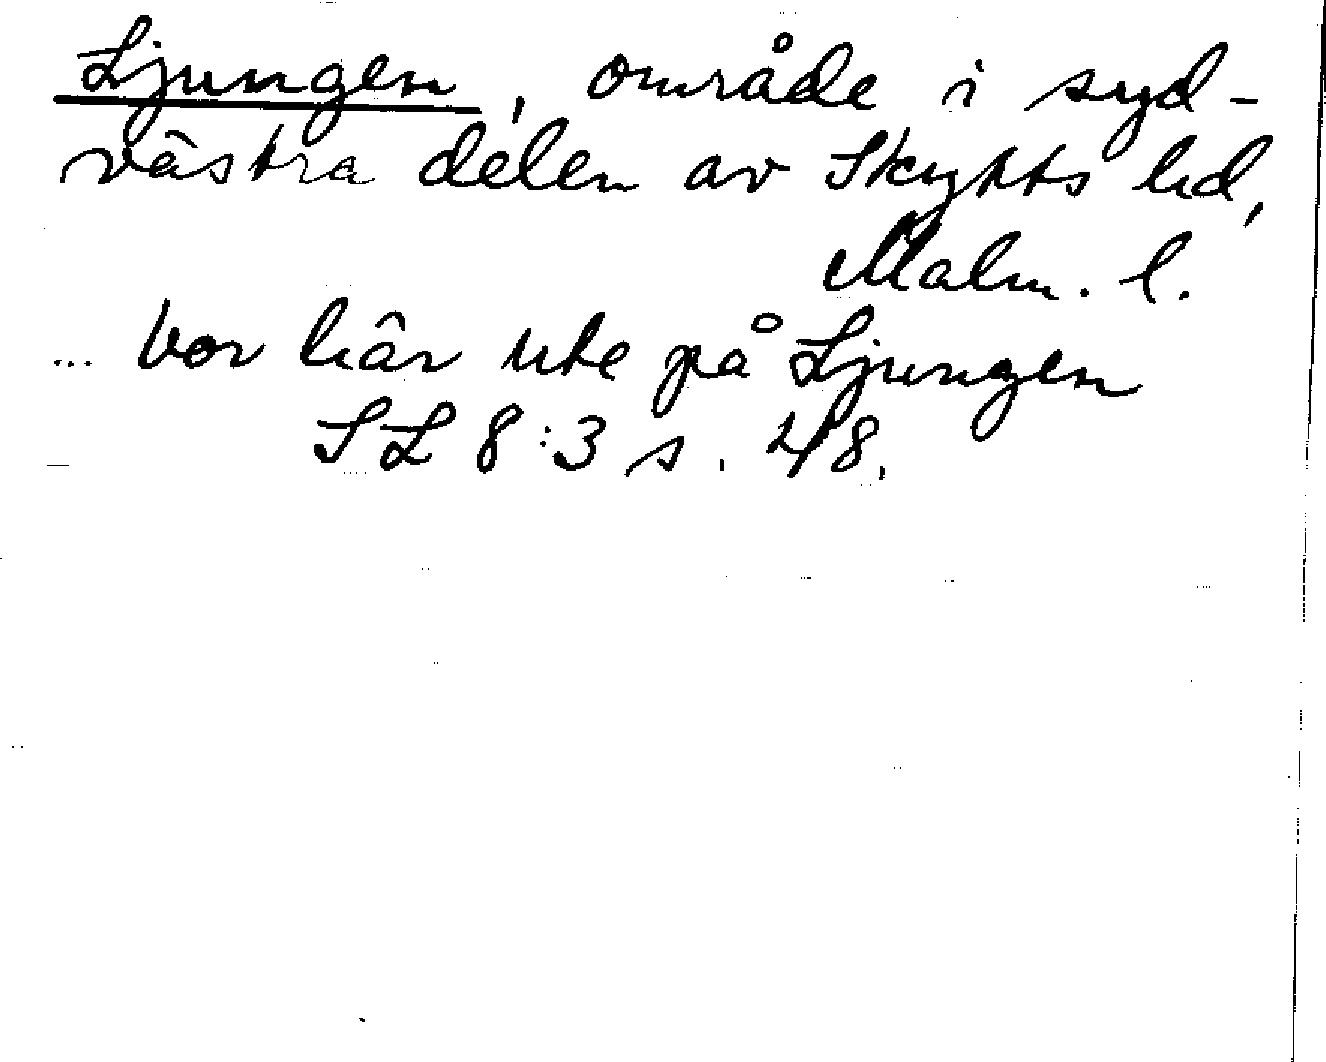 Ljungen, område i syd-
västra delen av Skytts hd,
Malm. l.
... bor här ute på Ljungen
SL 8:3 s. 48.